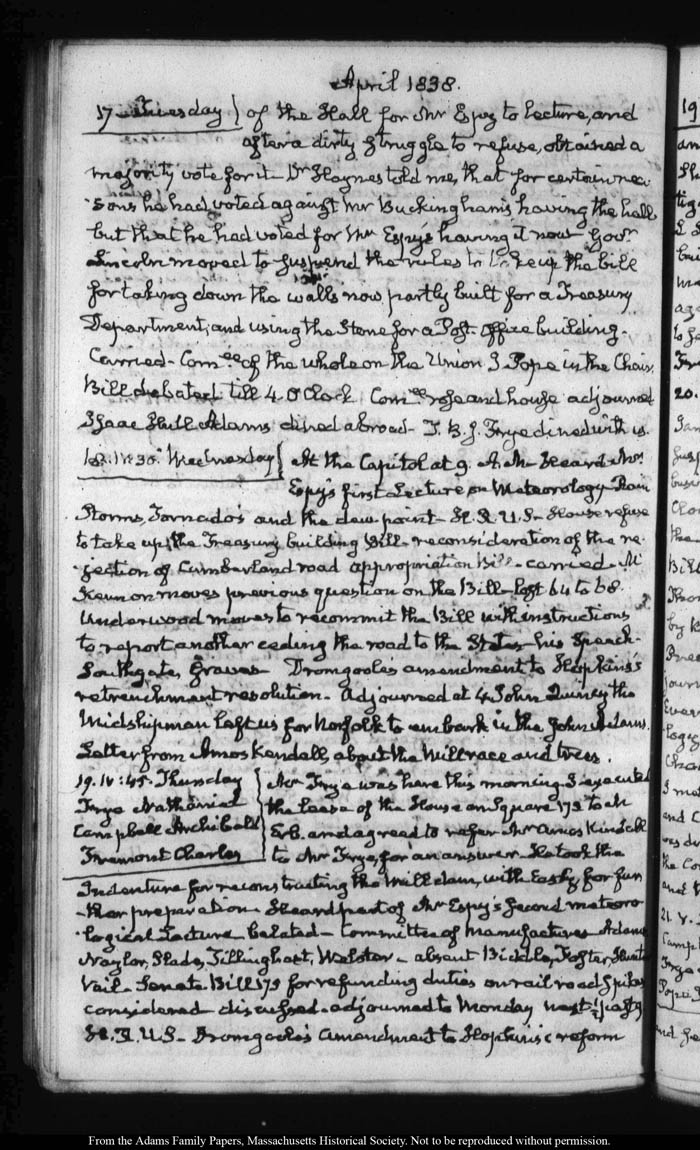 April 1838.
17 Tuesday } of the Hall for Mr Espy to lecture, and
after a dirty struggle to refuse, obtained a
majority vote for it— Dr Haynes told me, that for certain rea-
sons he had voted against Mr Buckingham's having the hall
but that he had voted for Mr Espy's having it now— Govr
Lincoln moved to suspend the rules to take up the bill
for taking down the walls now partly built for a Treasury
Department, and using the Stone for a Post-Office building.
Carried— Comee of the whole on the Union I. Pope in the Chair.
Bill debated till 4 O'Clock Comee rose and house adjourned
Isaac Hull Adams dined abroad— T. B. J. Frye dined with us.
18. IV:30. Wednesday { At the Capitol at 9. A.M. Heard Mr
Espy's first Lecture on Meteorology— Rain
Storms, Tornado's and the dew point— H.R.U.S— House refuse
to take up the Treasury building Bill— reconsideration of the re-
jection of Cumberland road appropriation Bill— carried— Mc
Kennon moves previous question on the Bill— lost 64 to 68.
Underwood moves to recommit the Bill with instructions
to report another ceding the road to the States— his Speech—
Southgate, Graves— Dromgoole's amendment to Hopkins's
retrenchment resolution— Adjourned at 4. John Quincy the
Midshipman left us for Norfolk to embark in the John Adams.
Letter from Amos Kendall, about the Millrace and trees.
19. IV:45. Thursday } Mr Frye was here this morning I executed
Frye Nathaniel the lease of the House on Square 173 to Mr
Campbell Archibald and agreed to refer Mr Amos Kendall
Fremont Charles to Mr Frye, for an answer. He took the
Indenture for reconstructing the Mill dam, with Easby, for fur-
-ther preparation— Heard part of Mr Espy's second meteoro-
logical Lecture belated— Committee of Manufactures Adams
Naylor, Slade, Tillinghast, Webster— absent Biddle, Foster,
Vail— Senate Bill 173 for refunding duties on rail road Spikes
considered— discussed— adjourned to Monday next ½ past 9
H.R.U.S— Dromgoole's amendment to Hopkins's reform
19
20.
21 V.
From the Adams Family Papers, Massachusetts Historical Society. Not to be reproduced without permission.